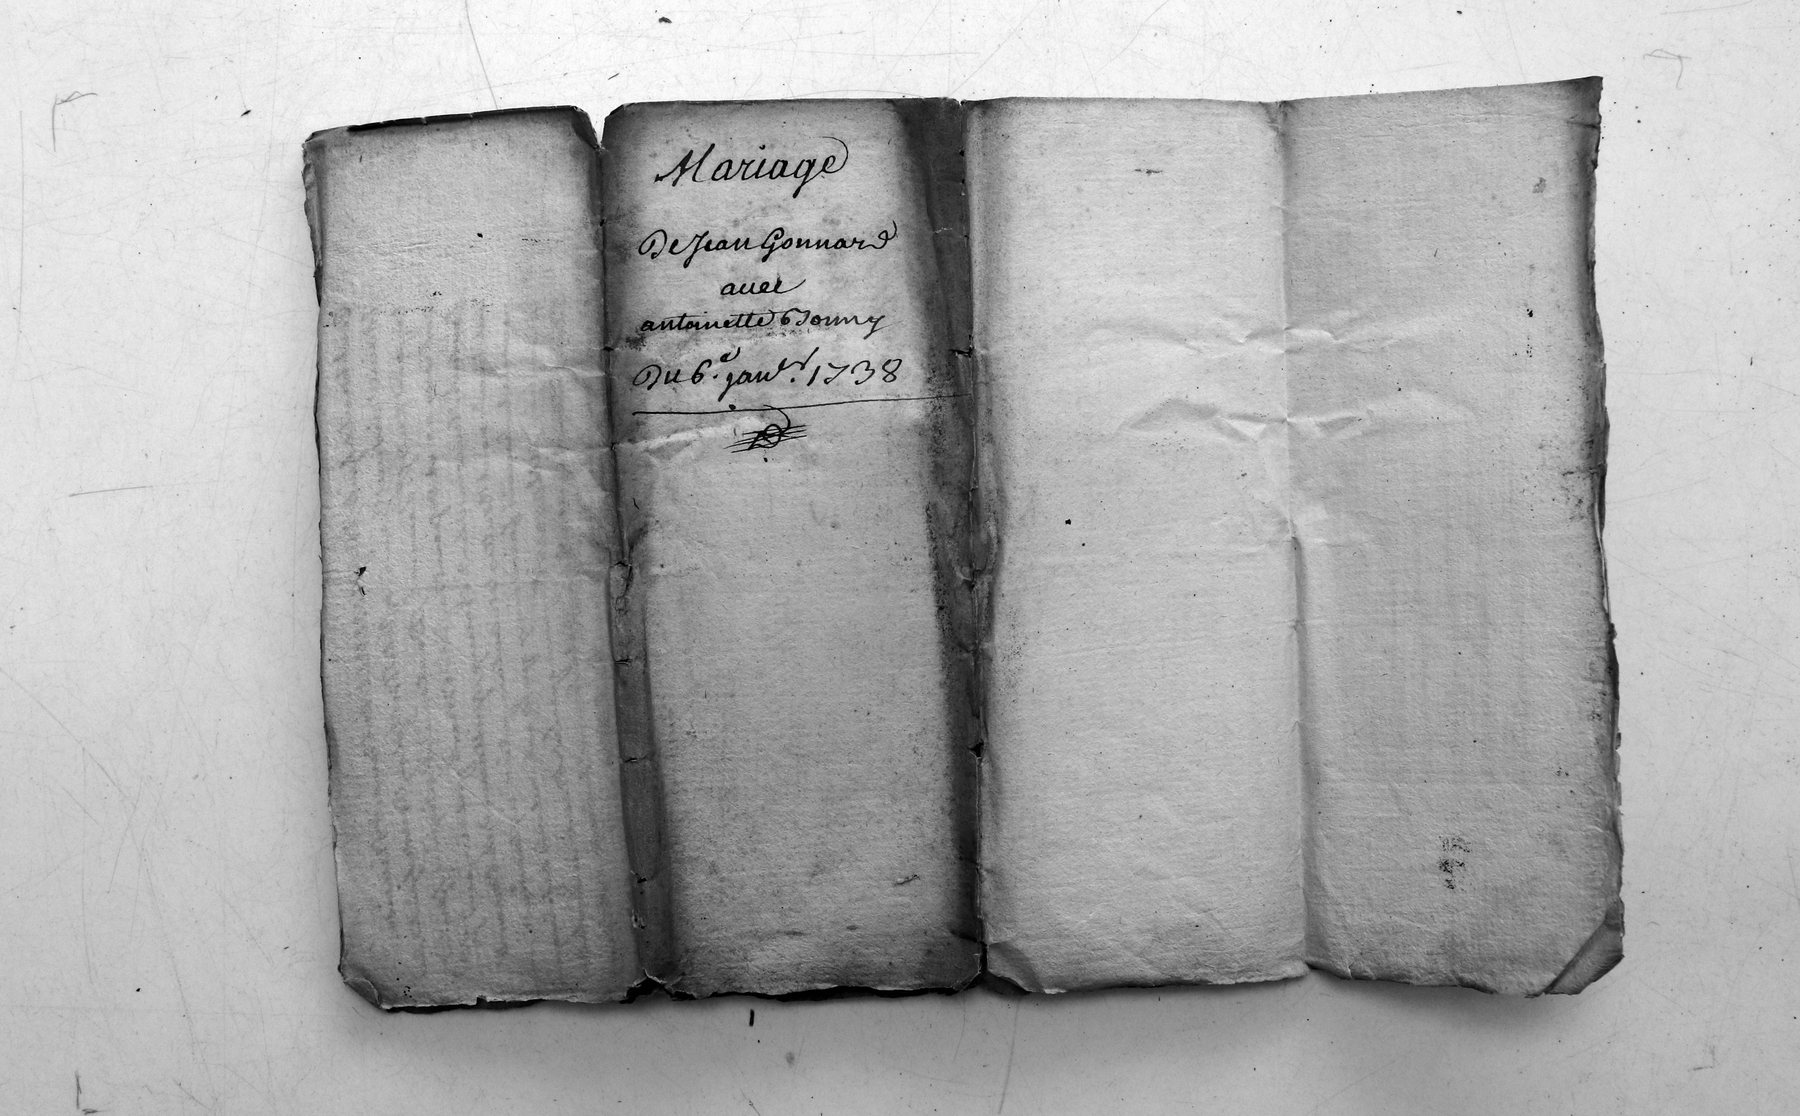 Mariage
De Jean Gonnard
avec
antoinette Bonny
Du 6.e janv.r 1738